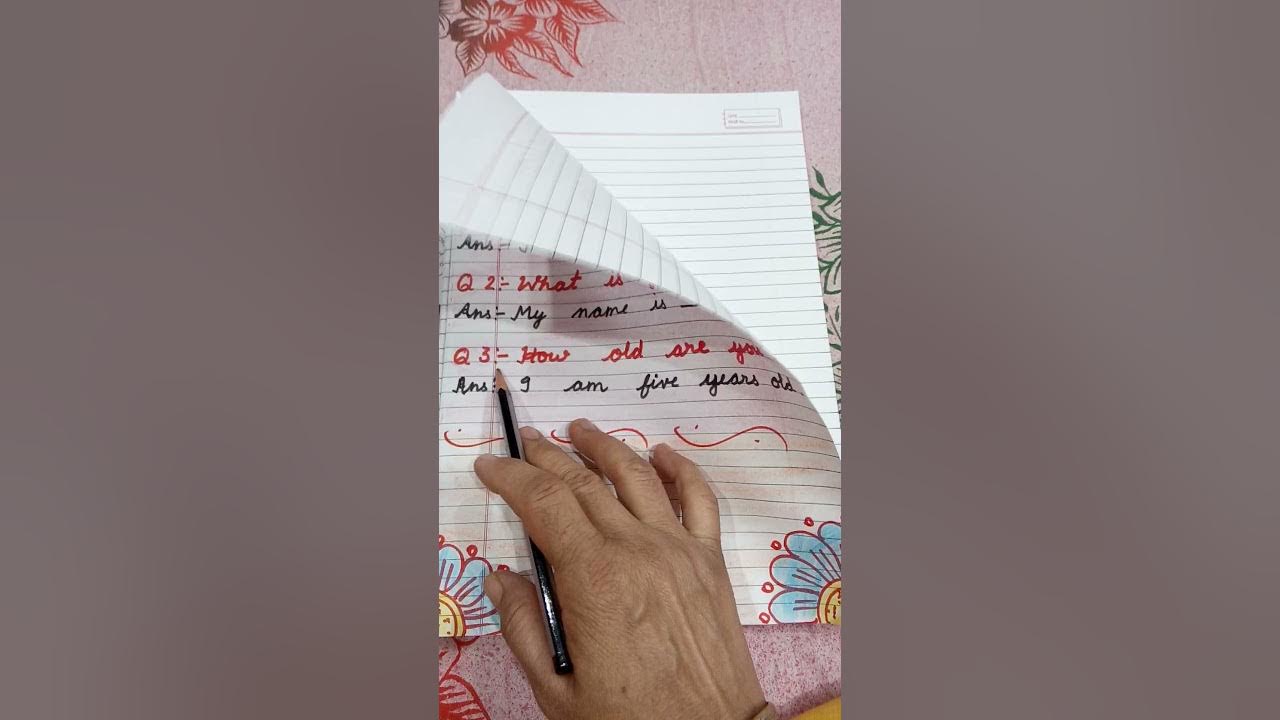 Ans:-
Q 2:- What is
Ans:- My name is —
Q 3:- How old are you
Ans:- I am five years old